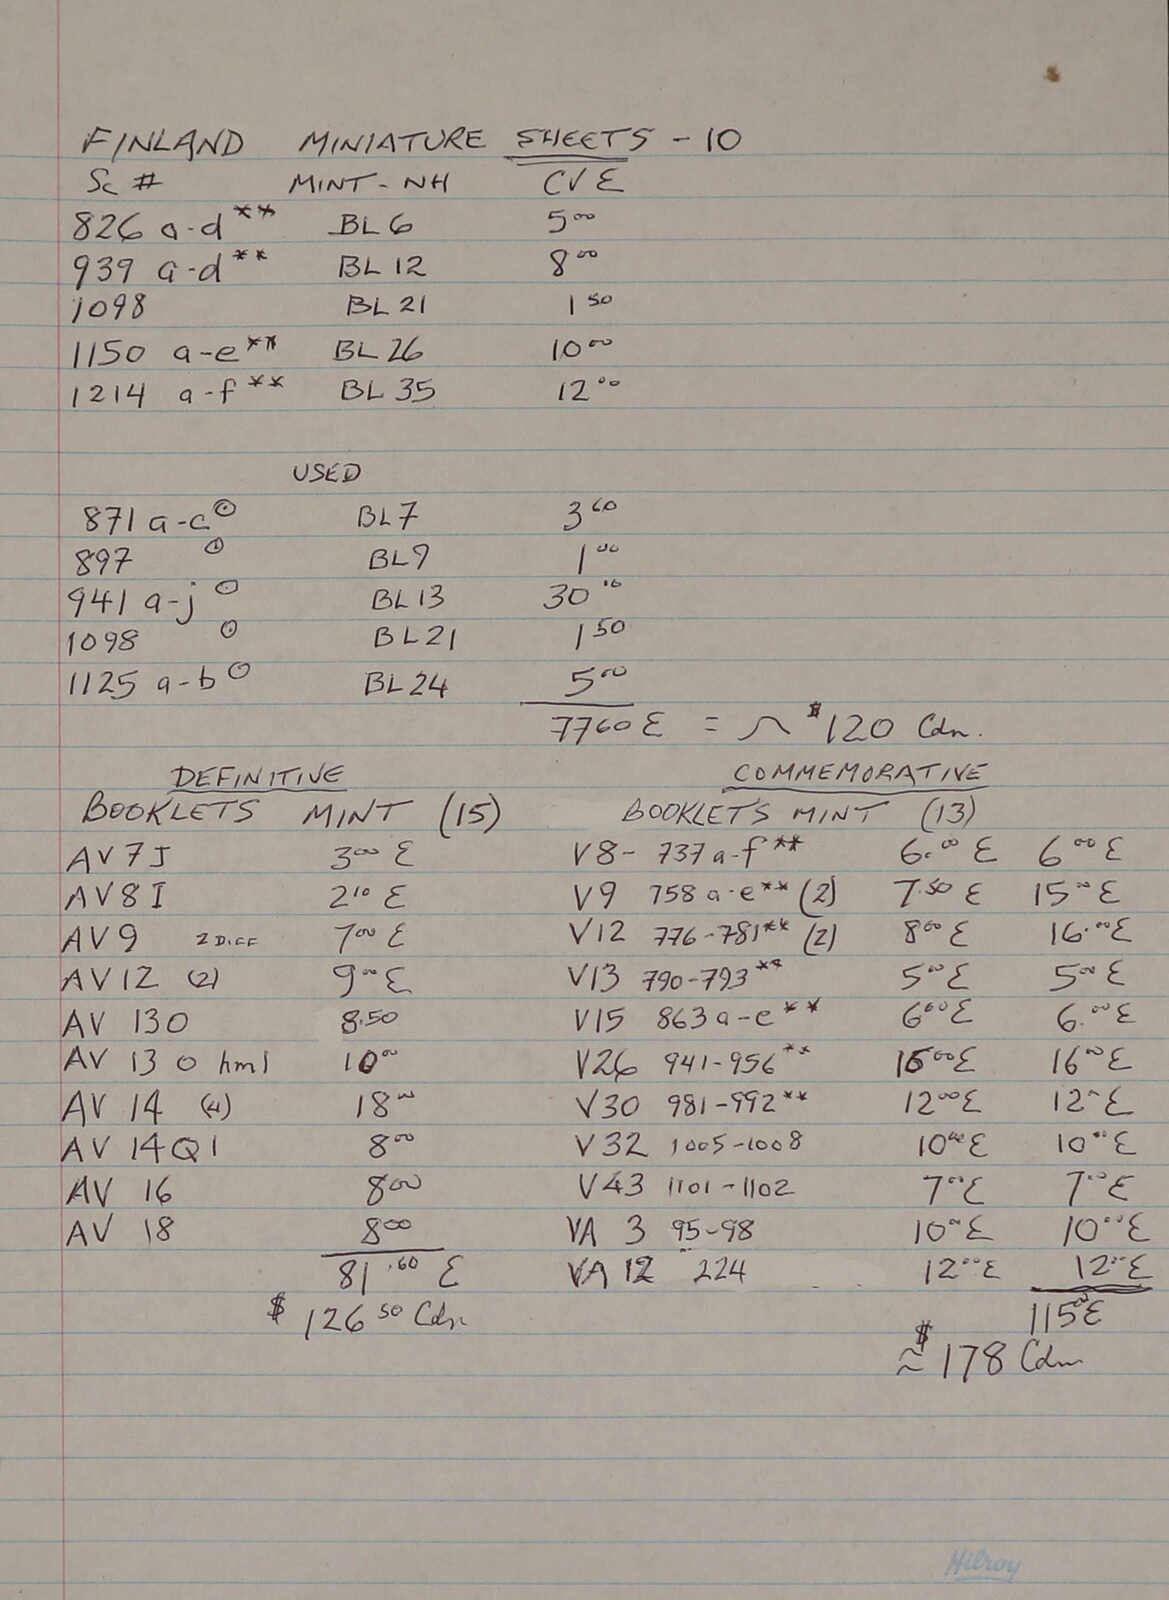 FINLAND MINIATURE SHEETS - 10
Sc # MINT - NH CV Ɛ
826 a-d ** BL 6 5 00
939 a-d ** BL 12 8 00
1098 BL 21 1 50
1150 a-e ** BL 26 10 00
1214 a-f ** BL 35 12 00
USED
871 a-c ⊙ BL 7 3 60
897 ⊙ BL 9 1 00
941 a-j ⊙ BL 13 30 00
1098 ⊙ BL 21 1 50
1125 a-b ⊙ BL 24 5 00
77 60 Ɛ = ~ $120 Cdn.
DEFINITIVE
BOOKLETS MINT (15)
AV 7 I 3 00 Ɛ
AV 8 I 2 10 Ɛ
AV 9 2 DIFF 7 00 Ɛ
AV 12 (2) 9 00 Ɛ
AV 130 8.50
AV 13 0 hml 10 00
AV 14 (4) 18 00
AV 14 Q 1 8 00
AV 16 8 00
AV 18 8 00
81 .60 Ɛ
$ 126 50 Cdn
COMMEMORATIVE
BOOKLETS MINT (13)
V8 - 737 a-f ** 6.00 Ɛ 6 00 Ɛ
V9 758 a-e ** (2) 7.50 Ɛ 15 00 Ɛ
V12 776-781 ** (2) 8 00 Ɛ 16.00 Ɛ
V13 790-793 ** 5 00 Ɛ 5 00 Ɛ
V15 863 a-e ** 6 00 Ɛ 6.00 Ɛ
V26 941-956 ** 16 00 Ɛ 16 00 Ɛ
V30 981-992 ** 12 00 Ɛ 12 00 Ɛ
V32 1005-1008 10 00 Ɛ 10 00 Ɛ
V43 1101-1102 7 00 Ɛ 7.00 Ɛ
VA 3 95-98 10 00 Ɛ 10 00 Ɛ
VA 12 224 12 00 Ɛ 12 00 Ɛ
115 00 Ɛ
≈ $178 Cdn
Hilroy